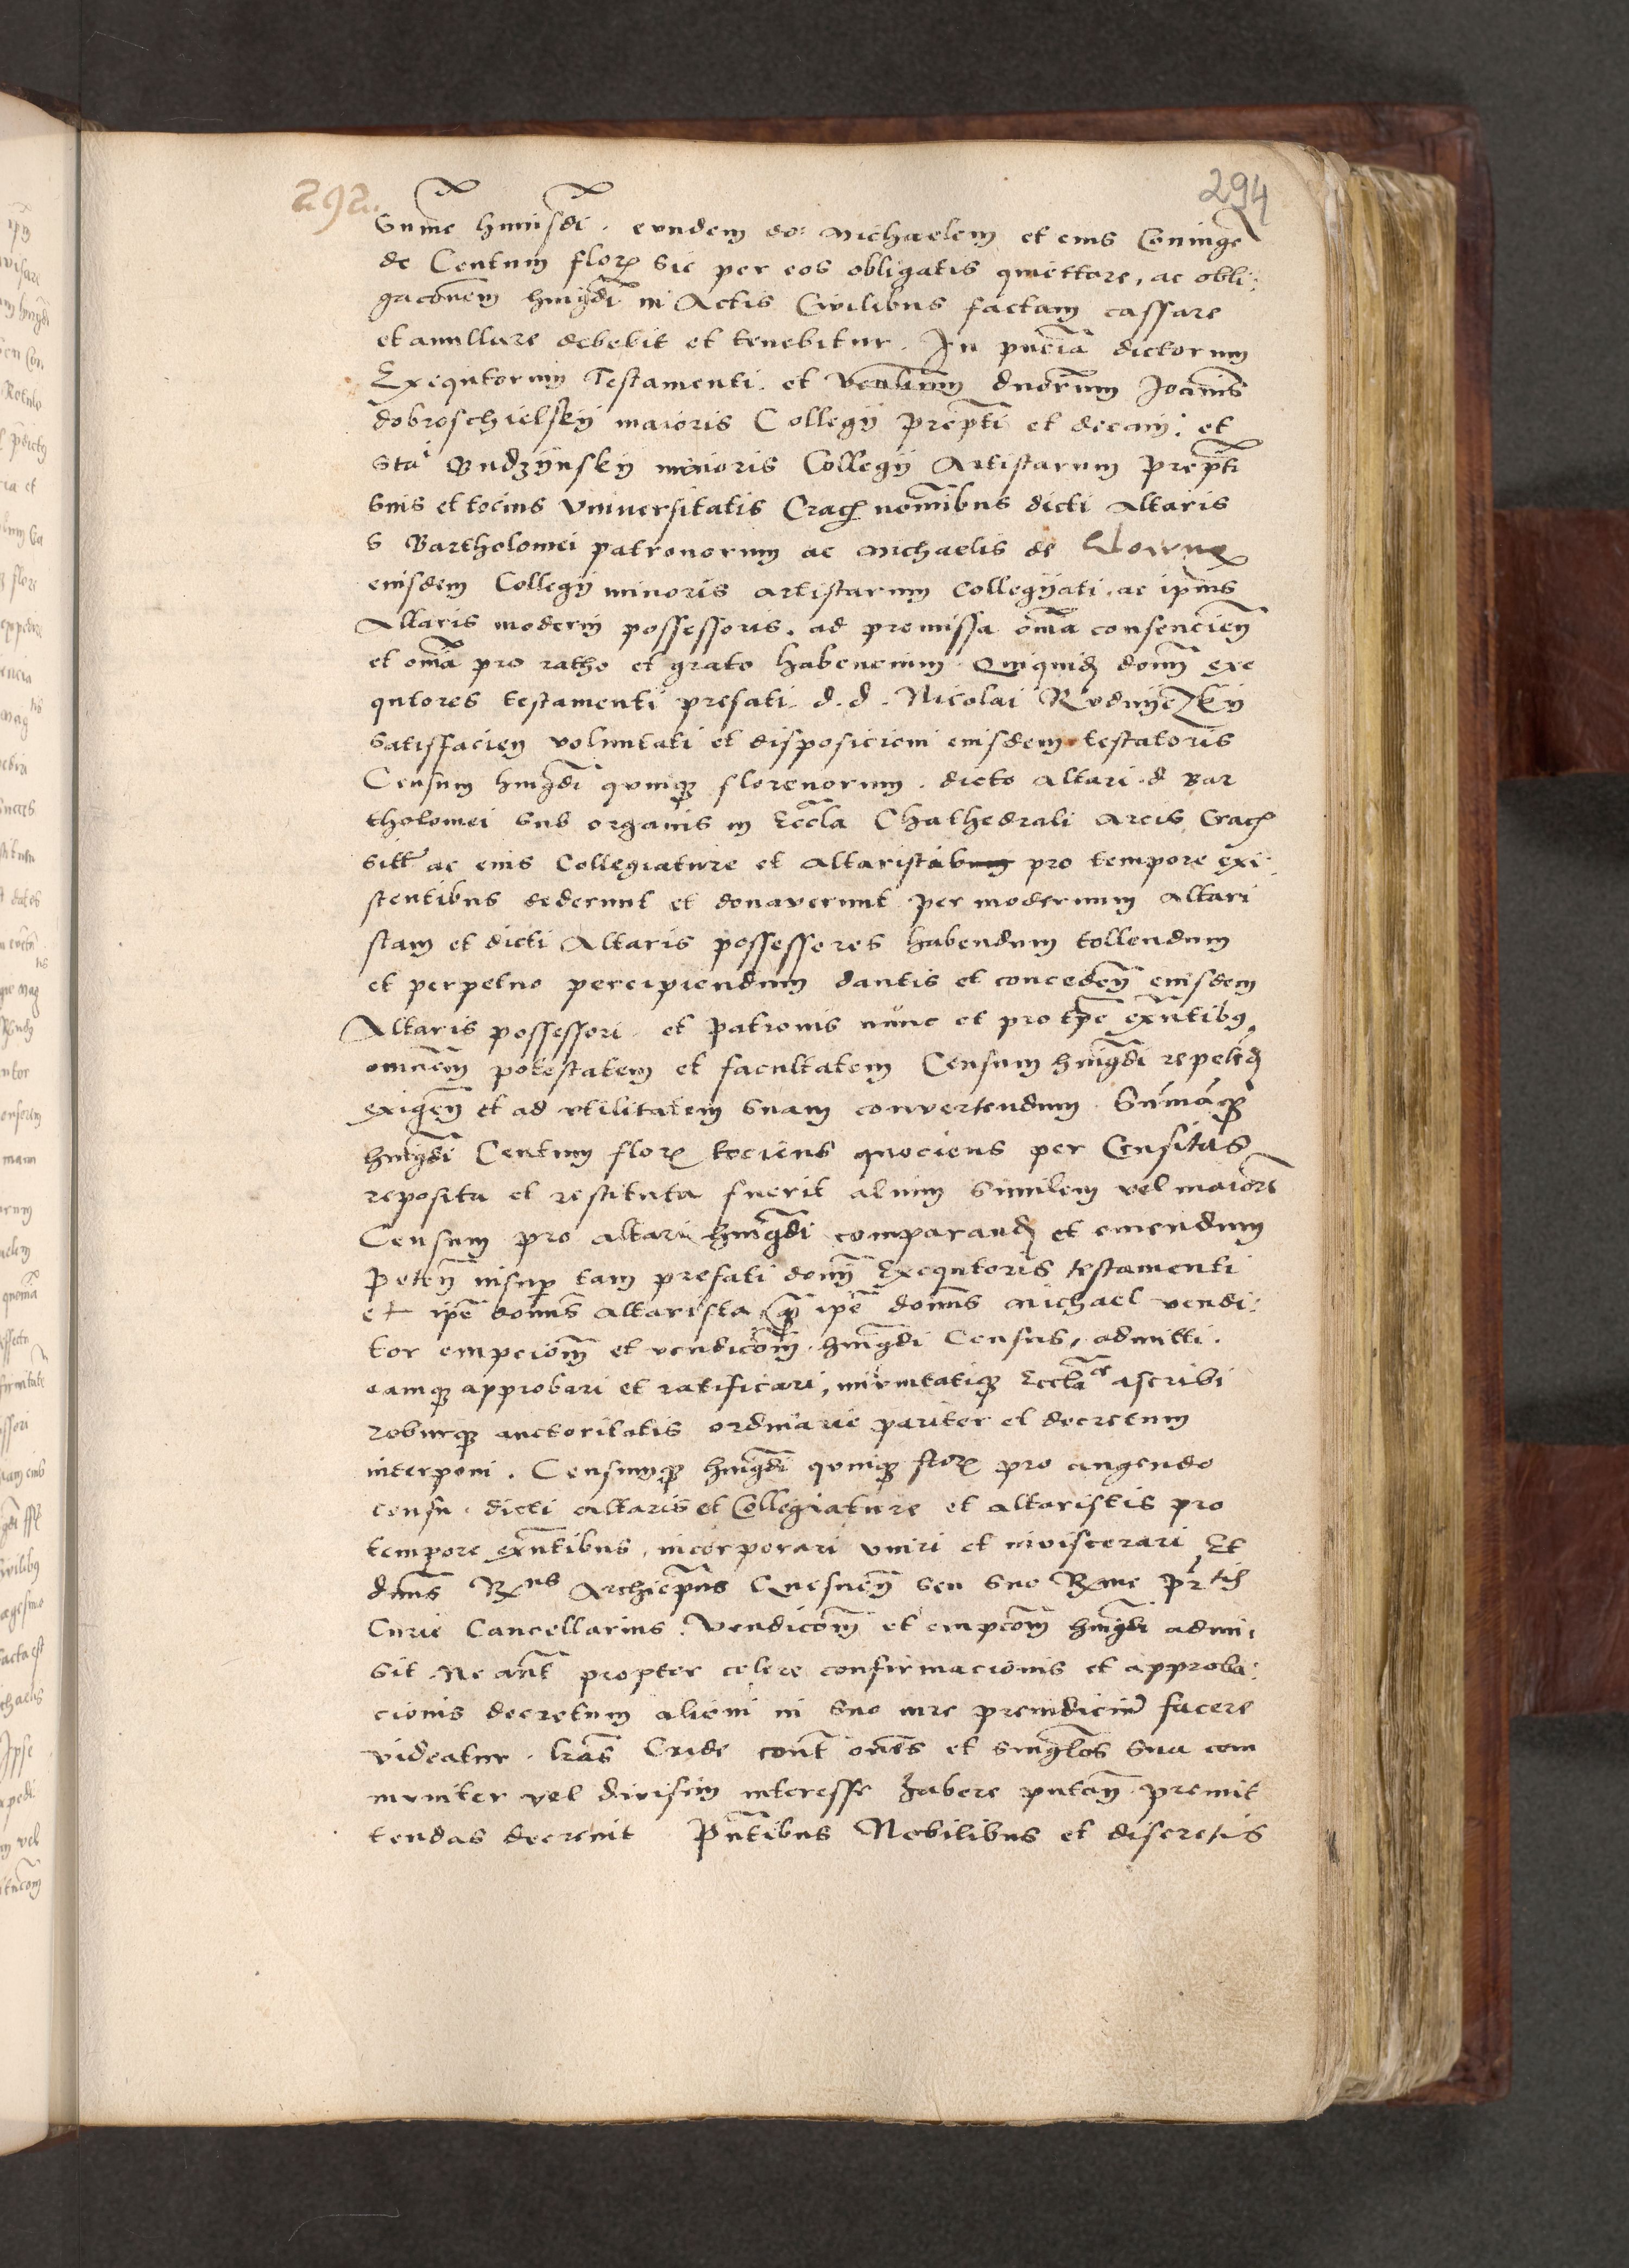 292.
294
Summe hmoi͂sdi. eundem do: Michaelem et eius Coniuge͂
de Centum flor͂ sic per eos obligatis quiettare, ac obli:
gaco͂nem hmg͂di in Actis Civilibus factam cassare
et annullare debebit et tenebitur. In pn͂cia dictorum
Exequtorum Testamenti. et Ven͂lium dnoru͂m Joan͂nis
dobroschielskÿ maioris Collegÿ Prep͂ti et decani: et
Sta͂ BudzÿnskÿV minoris Collegÿ Artistarum Prep͂ti
suis et tocius Universitatis Crac͂ nom͂ibus dicti Altaris
S Bartholomei patronorum ac Michaelis de
eiusdem Collegÿ minoris artistarum Collegÿati. ac ip͂ius
Altaris moderni possessoris. ad premissa om͂ia consencien͂
et om͂ia pro ratho et grato habencium. Quiquid͂ domi͂ exe
qutores testamenti prefati. d. d. Nicolai
satisfacien͂ voluntati et disposicioni eiusdem testatoris
Censum hmg͂di quinq͂ florenorum. dicto altari. d Bar
tholomei sub organis in Eccl͂a Chathedrali Arcis Crac͂
sitt͂ ac eius Collegiature et Altaristabus pro tempore exi:
stentibus dederunt et donaverunt per modernum Altari
stam et dicti Altaris possessores habendum tollendum
et perpetuo percipiendum dantis et conceden͂ eiusdem
Altaris possessori. et Patronis nunc et pro tp͂e exn͂tibus
omne͂m potestatem et facultatem Censum hmg͂di repetend͂
exigen͂ et ad utilitatem suam convertendum. Sum͂aq͂
hmg͂di Centum flor͂ tociens quociens per Censitas
reposita et restituta fuerit alium similem vel maiore͂
Censum pro altari hmg͂di comparand͂ et emendum
Peten͂ insup͂ tam prefati domi͂ Exequtoris testamenti
et ip͂e dom͂s altarista q͂ ip͂e dom͂s Michael vendi:
tor empcio͂m et vendico͂m hmg͂di Census, admitti.
eamq͂ approbari et ratificari, imunitatiq͂ Eccl͂ce ascribi
roburq͂ auctoritatis ordinarie pariter et decretum
interponi. Censumq͂ hmg͂di quinq͂ flor͂ pro augendo
censu. dicti altaris et Collegiature et altaristis pro
tempore exn͂tibus, incorporari uniri et inviscerari Et
dn͂s R͂ns Archiep͂us Gnesnen͂ seu suo R͂me p͂rtis
Curie Cancellarius. Vendico͂m et empco͂m hmg͂di admi:
sit. Ne aut͂ propter celere confirmacionis et approba:
cionis decretum alicui in suo iure preiudiciu͂ facere
videatur. lr͂as Cride cont͂ om͂es et sing͂los sua com
muniter vel divisim interesse habere putan͂. premit
tendas decrevit Pn͂tibus Nobilibus et discretis